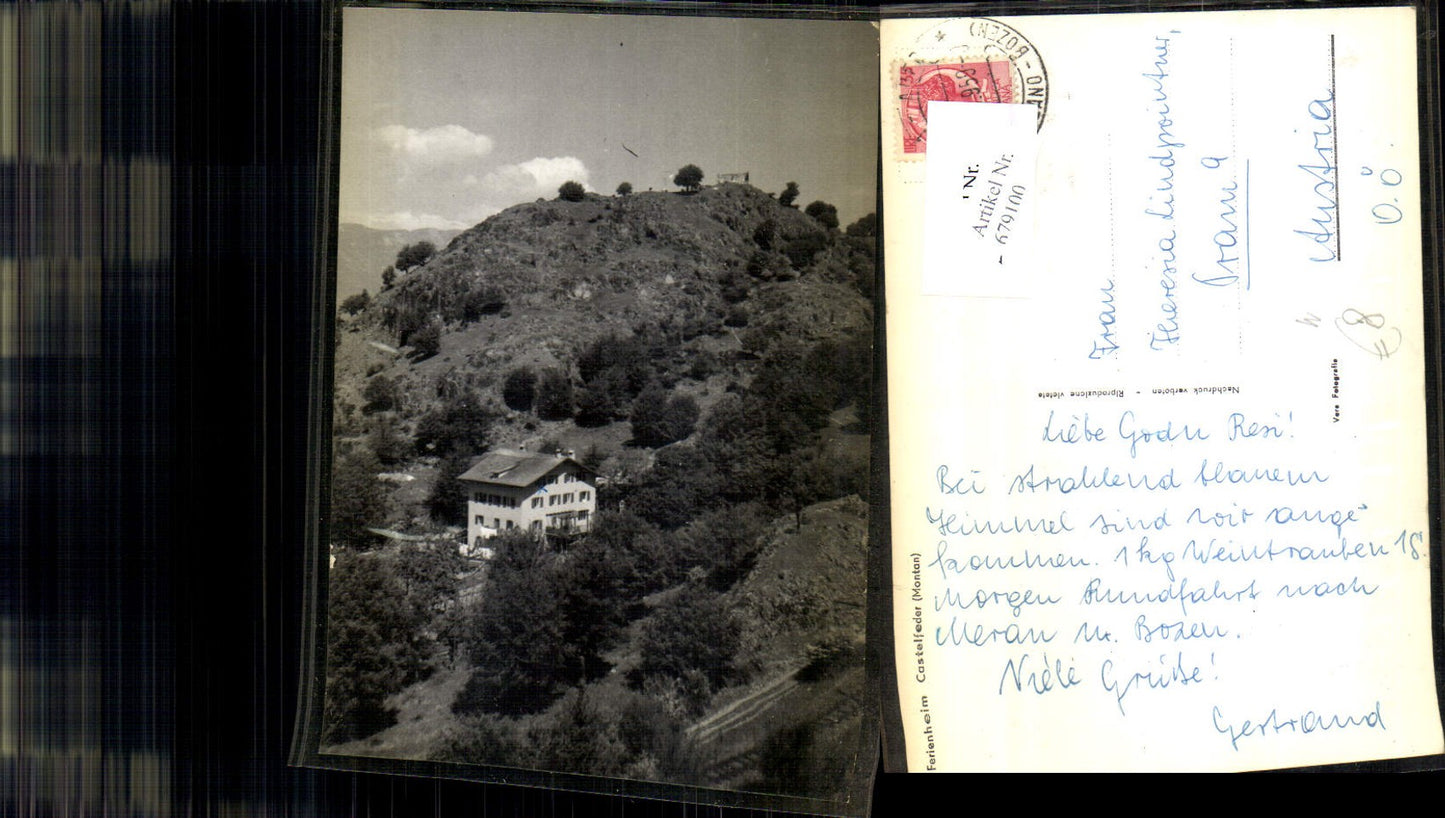 Liebe Godn Resi!
Bei strahlend blauem
Himmel sind wir ange-
kommen. 1 kg Weintrauben 18.
Morgen Rundfahrt nach
Meran u. Bozen.
Viele Grüße!
Gertraud
Frau
Theresia Lindpointner,
Pram 9
Austria
O.Ö.
Nachdruck verboten - Riproduzione vietata
Vera Fotografia
Ferienheim Castelfeder (Montan)
Nr.
Artikel Nr.
679100
BOZEN)